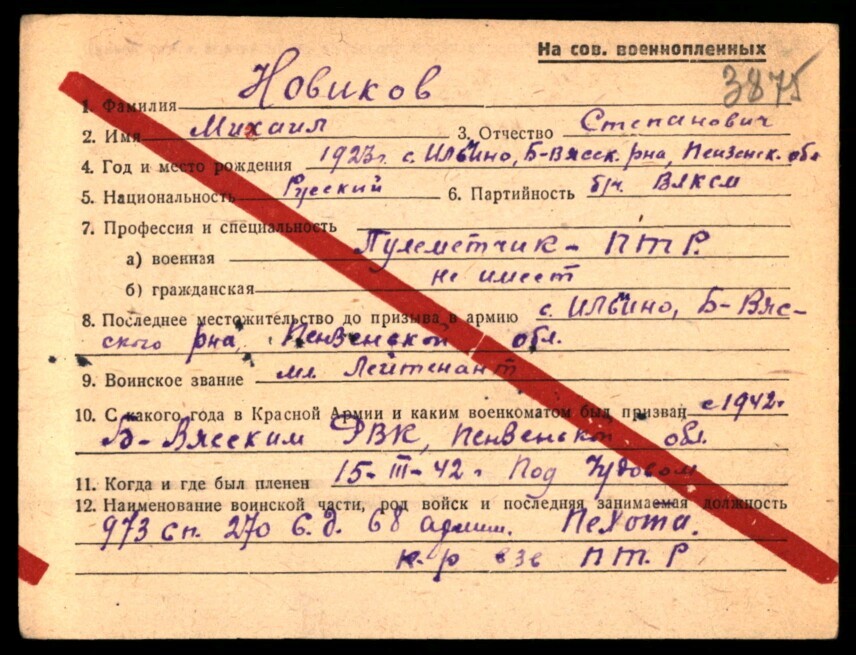 На сов. военнопленных
3875
1. Фамилия Новиков
2. Имя Михаил 3. Отчество Степанович
4. Год и место рождения 1923г. с. Ильино, Б-Вясск. рна, Пензенск. обл
5. Национальность Русский 6. Партийность б/ч. ВЛКСМ
7. Профессия и специальность
а) военная Пулеметчик - ПТР.
б) гражданская не имеет
8. Последнее местожительство до призыва в армию с. Ильино, Б-Вяс-
ского рна, Пензенской обл.
9. Воинское звание мл. Лейтенант
10. С какого года в Красной Армии и каким военкоматом был призван с 1942г
Б-Вясским РВК, Пензенской обл.
11. Когда и где был пленен 15-III-42г Под Чудовом
12. Наименование воинской части, род войск и последняя занимаемая должность
973 сп. 270 с.д. 68 армии. Пехота.
к-р взв ПТР